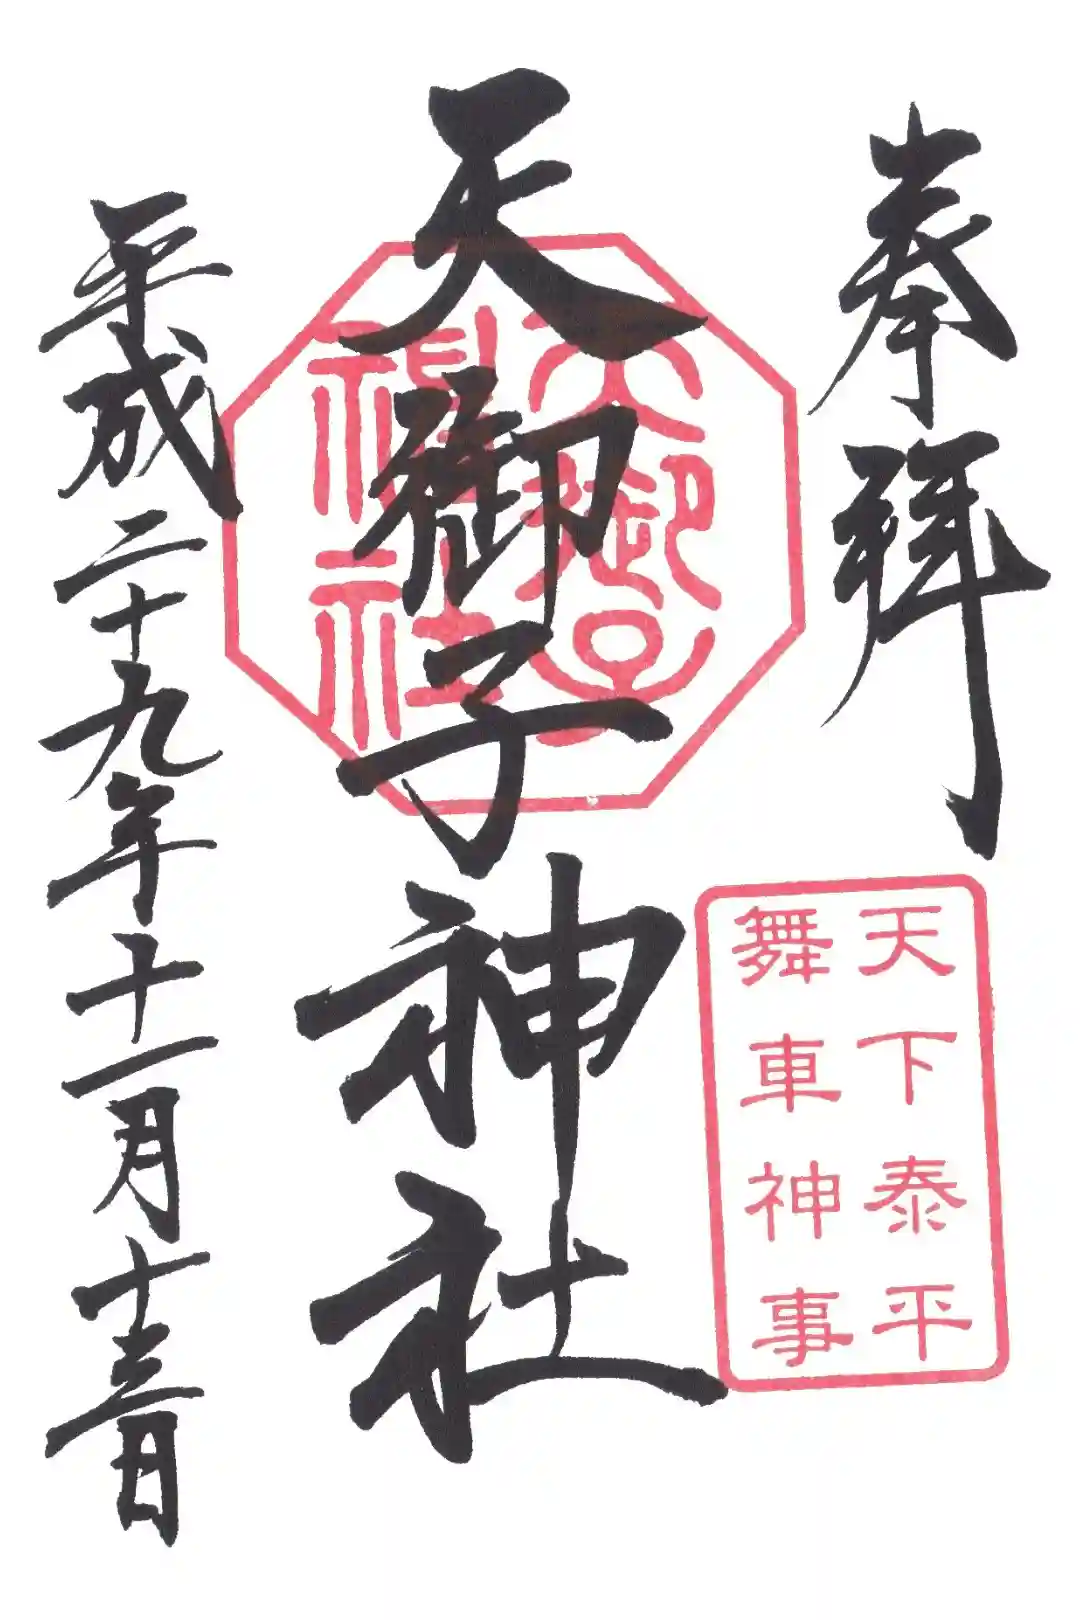 奉拝
天下泰平
舞車神事
天御子神社
天御子
神社
平成二十九年十一月十三日